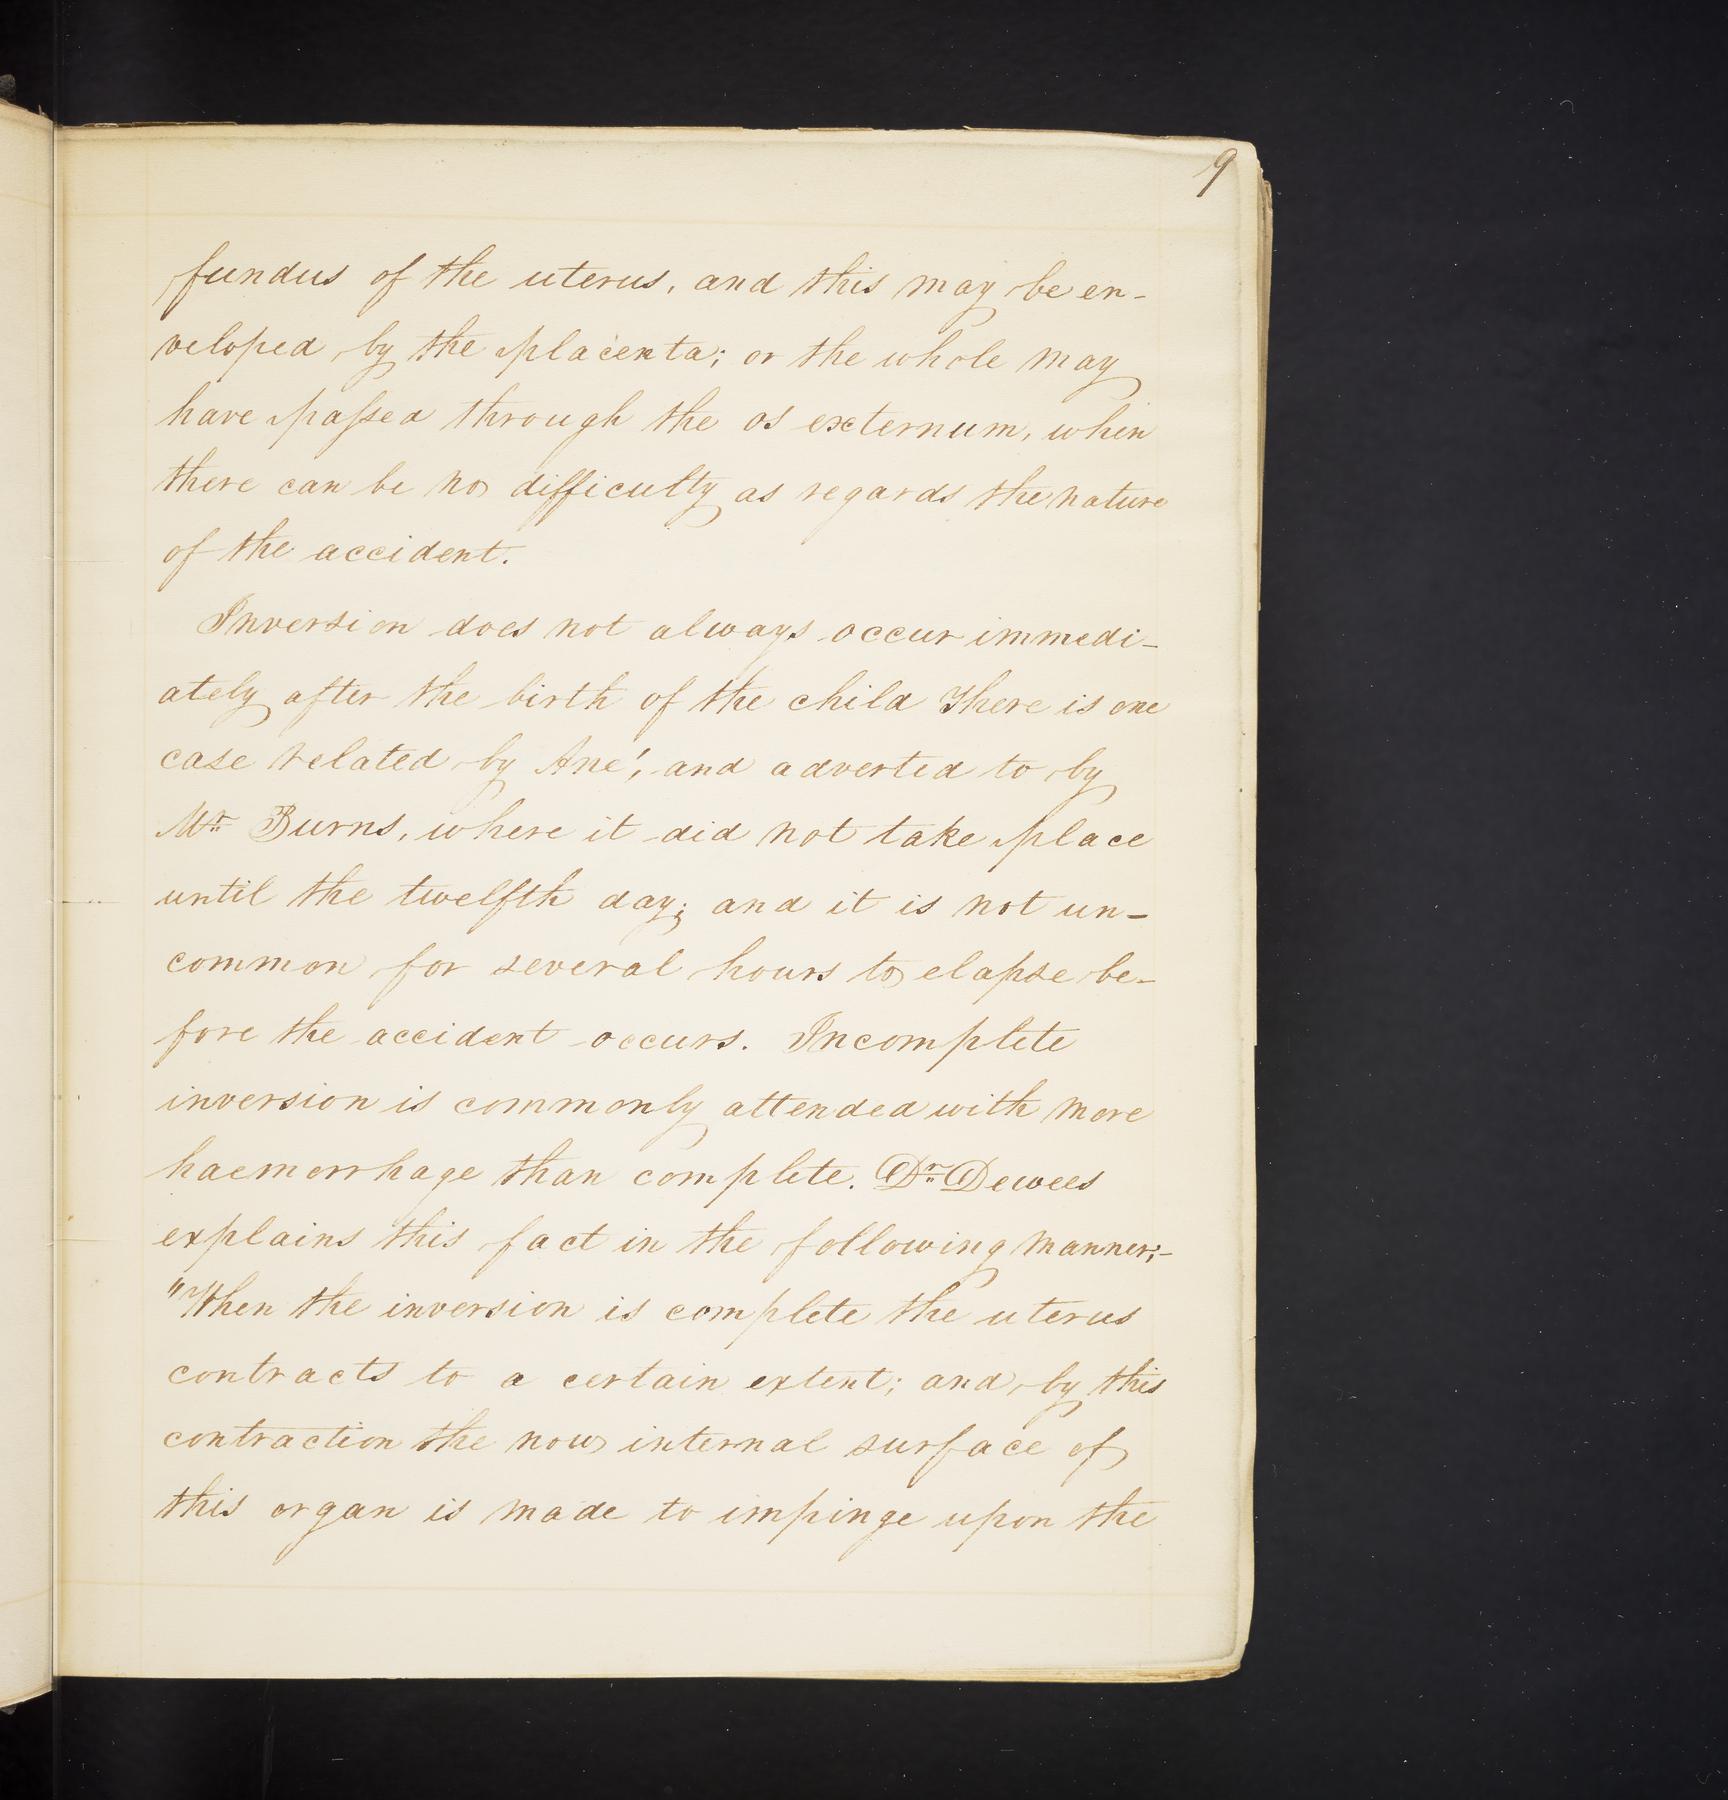 9
fundus of the uterus, and this may be en-
veloped by the placenta; or the whole may
have paſsed through the os externum, when
there can be no difficulty as regards the nature
of the accident.
Inversion does not always occur immedi-
ately after the birth of the child There is one
case related by Ané, and adverted to by
Mr. Burns, where it did not take place
until the twelfth day; and it is not un-
common for several hours to elapse be-
fore the accident occurs. Incomplete
inversion is commonly attended with more
haemorrhage than complete. Dr. Dewees
explains this fact in the following manner;-
"When the inversion is complete the uterus
contracts to a certain extent; and by this
contraction the now internal surface of
this organ is made to impinge upon the